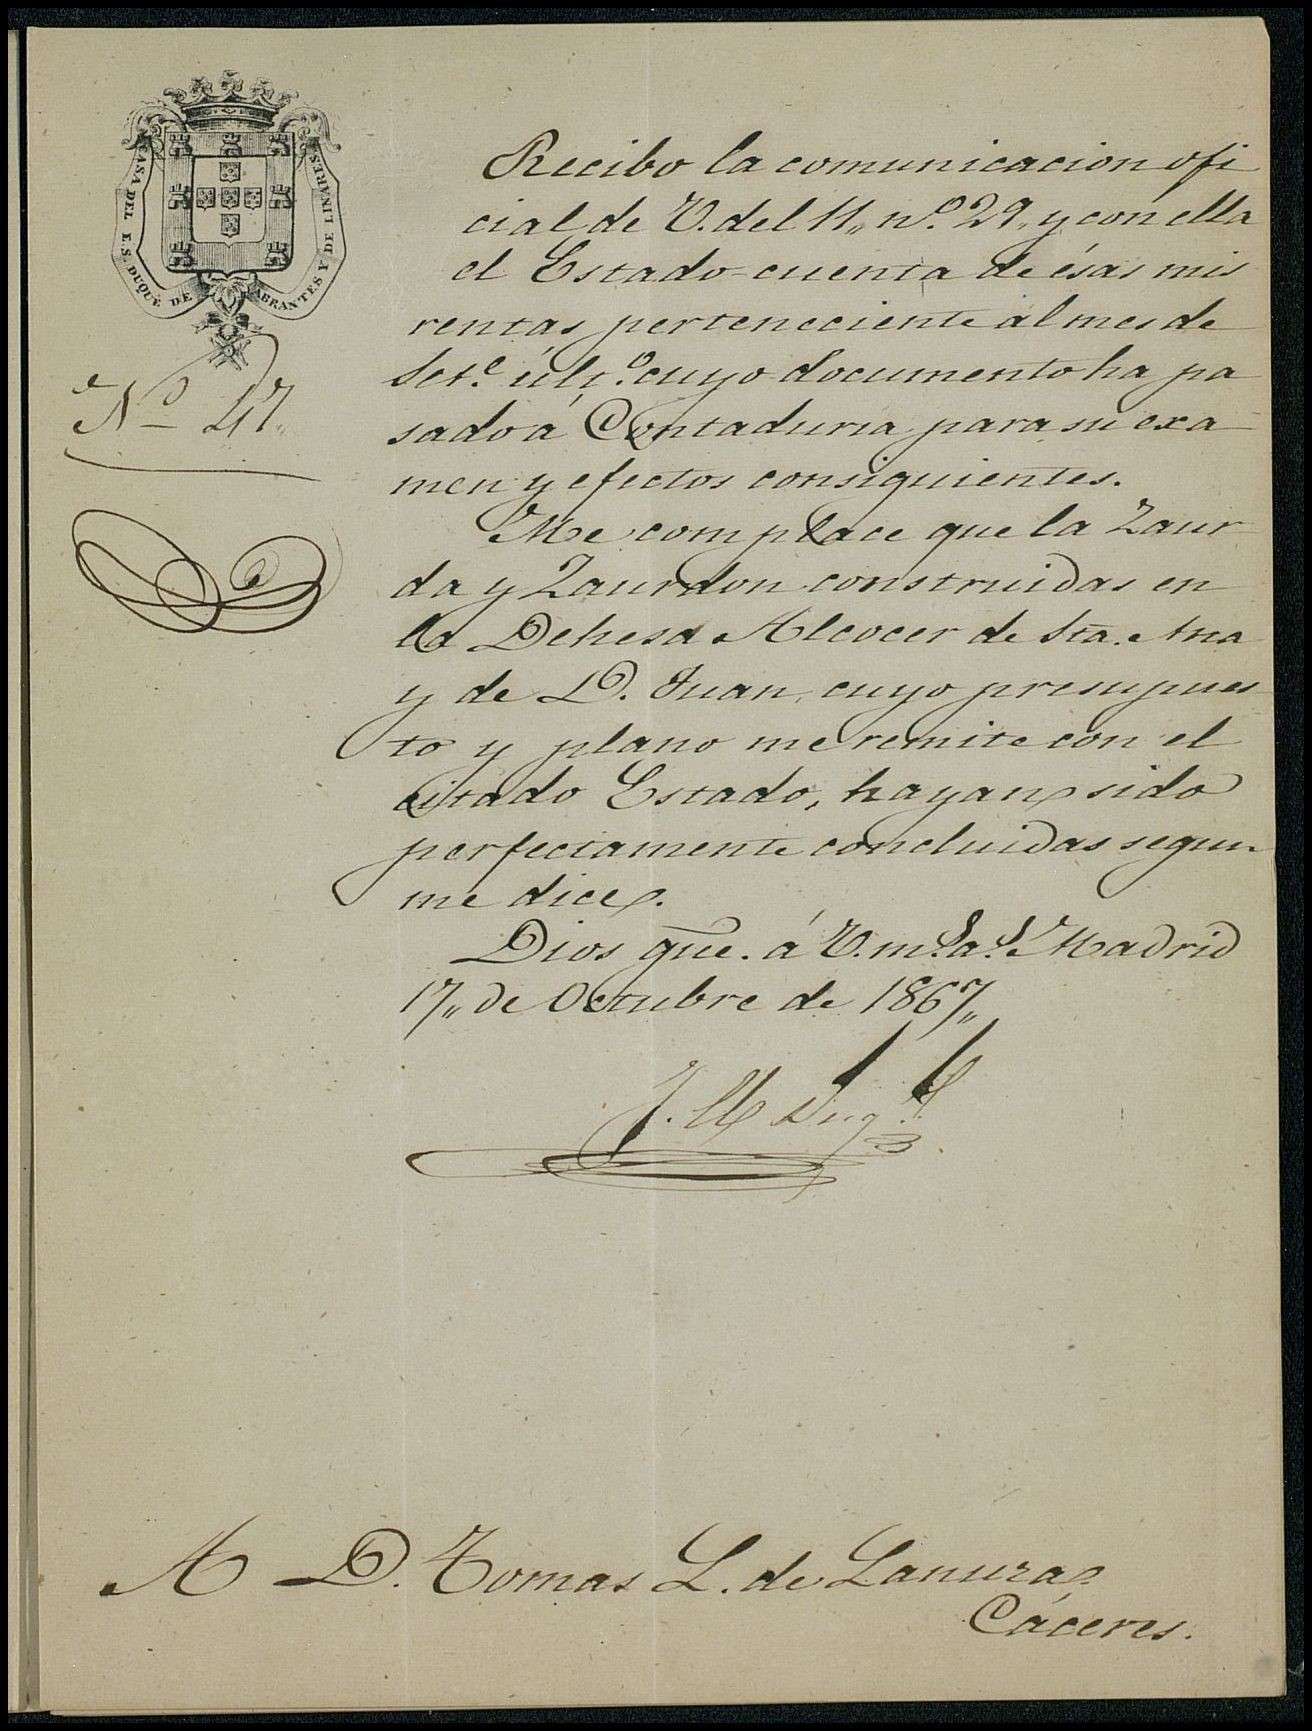 CASA DEL E. S. DUQUE DE ABRANTES Y DE LINARES
Nº 47,,
Recibo la comunicacion ofi
cial de V. del 11,, nº 29,, y con ella
el Estado-cuenta de ésas mis
rentas perteneciente al mes de
Sete. últº. cuyo documento ha pa
sado á Contaduría para su exa
men y efectos consiguientes.
Me complace que la Zaur
da y Zaurdon construidas en
la Dehesa Alcocer de Sta. Ana
y de D. Juan, cuyo presupues
to y plano me remite con el
citado Estado, hayan sido
perfectamente concluidas segun
me dice.
Dios gue. á V. ms. as. Madrid
17,, de Octubre de 1867,,
A D. Tomas L. de Lanuza.
Cáceres.